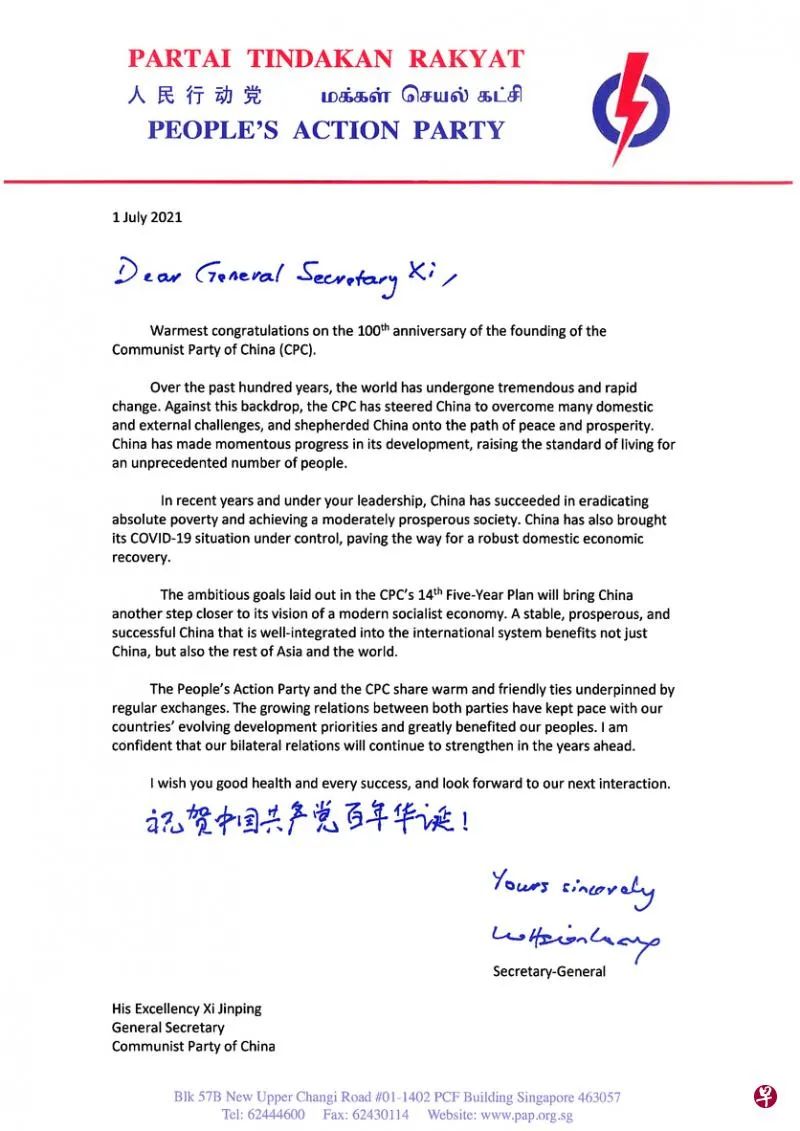 PARTAI TINDAKAN RAKYAT
人民行动党 மக்கள் செயல் கட்சி
PEOPLE'S ACTION PARTY
1 July 2021
Dear General Secretary Xi,
Warmest congratulations on the 100th anniversary of the founding of the
Communist Party of China (CPC).
Over the past hundred years, the world has undergone tremendous and rapid
change. Against this backdrop, the CPC has steered China to overcome many domestic
and external challenges, and shepherded China onto the path of peace and prosperity.
China has made momentous progress in its development, raising the standard of living for
an unprecedented number of people.
In recent years and under your leadership, China has succeeded in eradicating
absolute poverty and achieving a moderately prosperous society. China has also brought
its COVID-19 situation under control, paving the way for a robust domestic economic
recovery.
The ambitious goals laid out in the CPC's 14th Five-Year Plan will bring China
another step closer to its vision of a modern socialist economy. A stable, prosperous, and
successful China that is well-integrated into the international system benefits not just
China, but also the rest of Asia and the world.
The People's Action Party and the CPC share warm and friendly ties underpinned by
regular exchanges. The growing relations between both parties have kept pace with our
countries' evolving development priorities and greatly benefited our peoples. I am
confident that our bilateral relations will continue to strengthen in the years ahead.
I wish you good health and every success, and look forward to our next interaction.
祝贺中国共产党百年华诞！
Yours sincerely
Lee Hsien Loong
Secretary-General
His Excellency Xi Jinping
General Secretary
Communist Party of China
Blk 57B New Upper Changi Road #01-1402 PCF Building Singapore 463057
Tel: 62444600 Fax: 62430114 Website: www.pap.org.sg
早